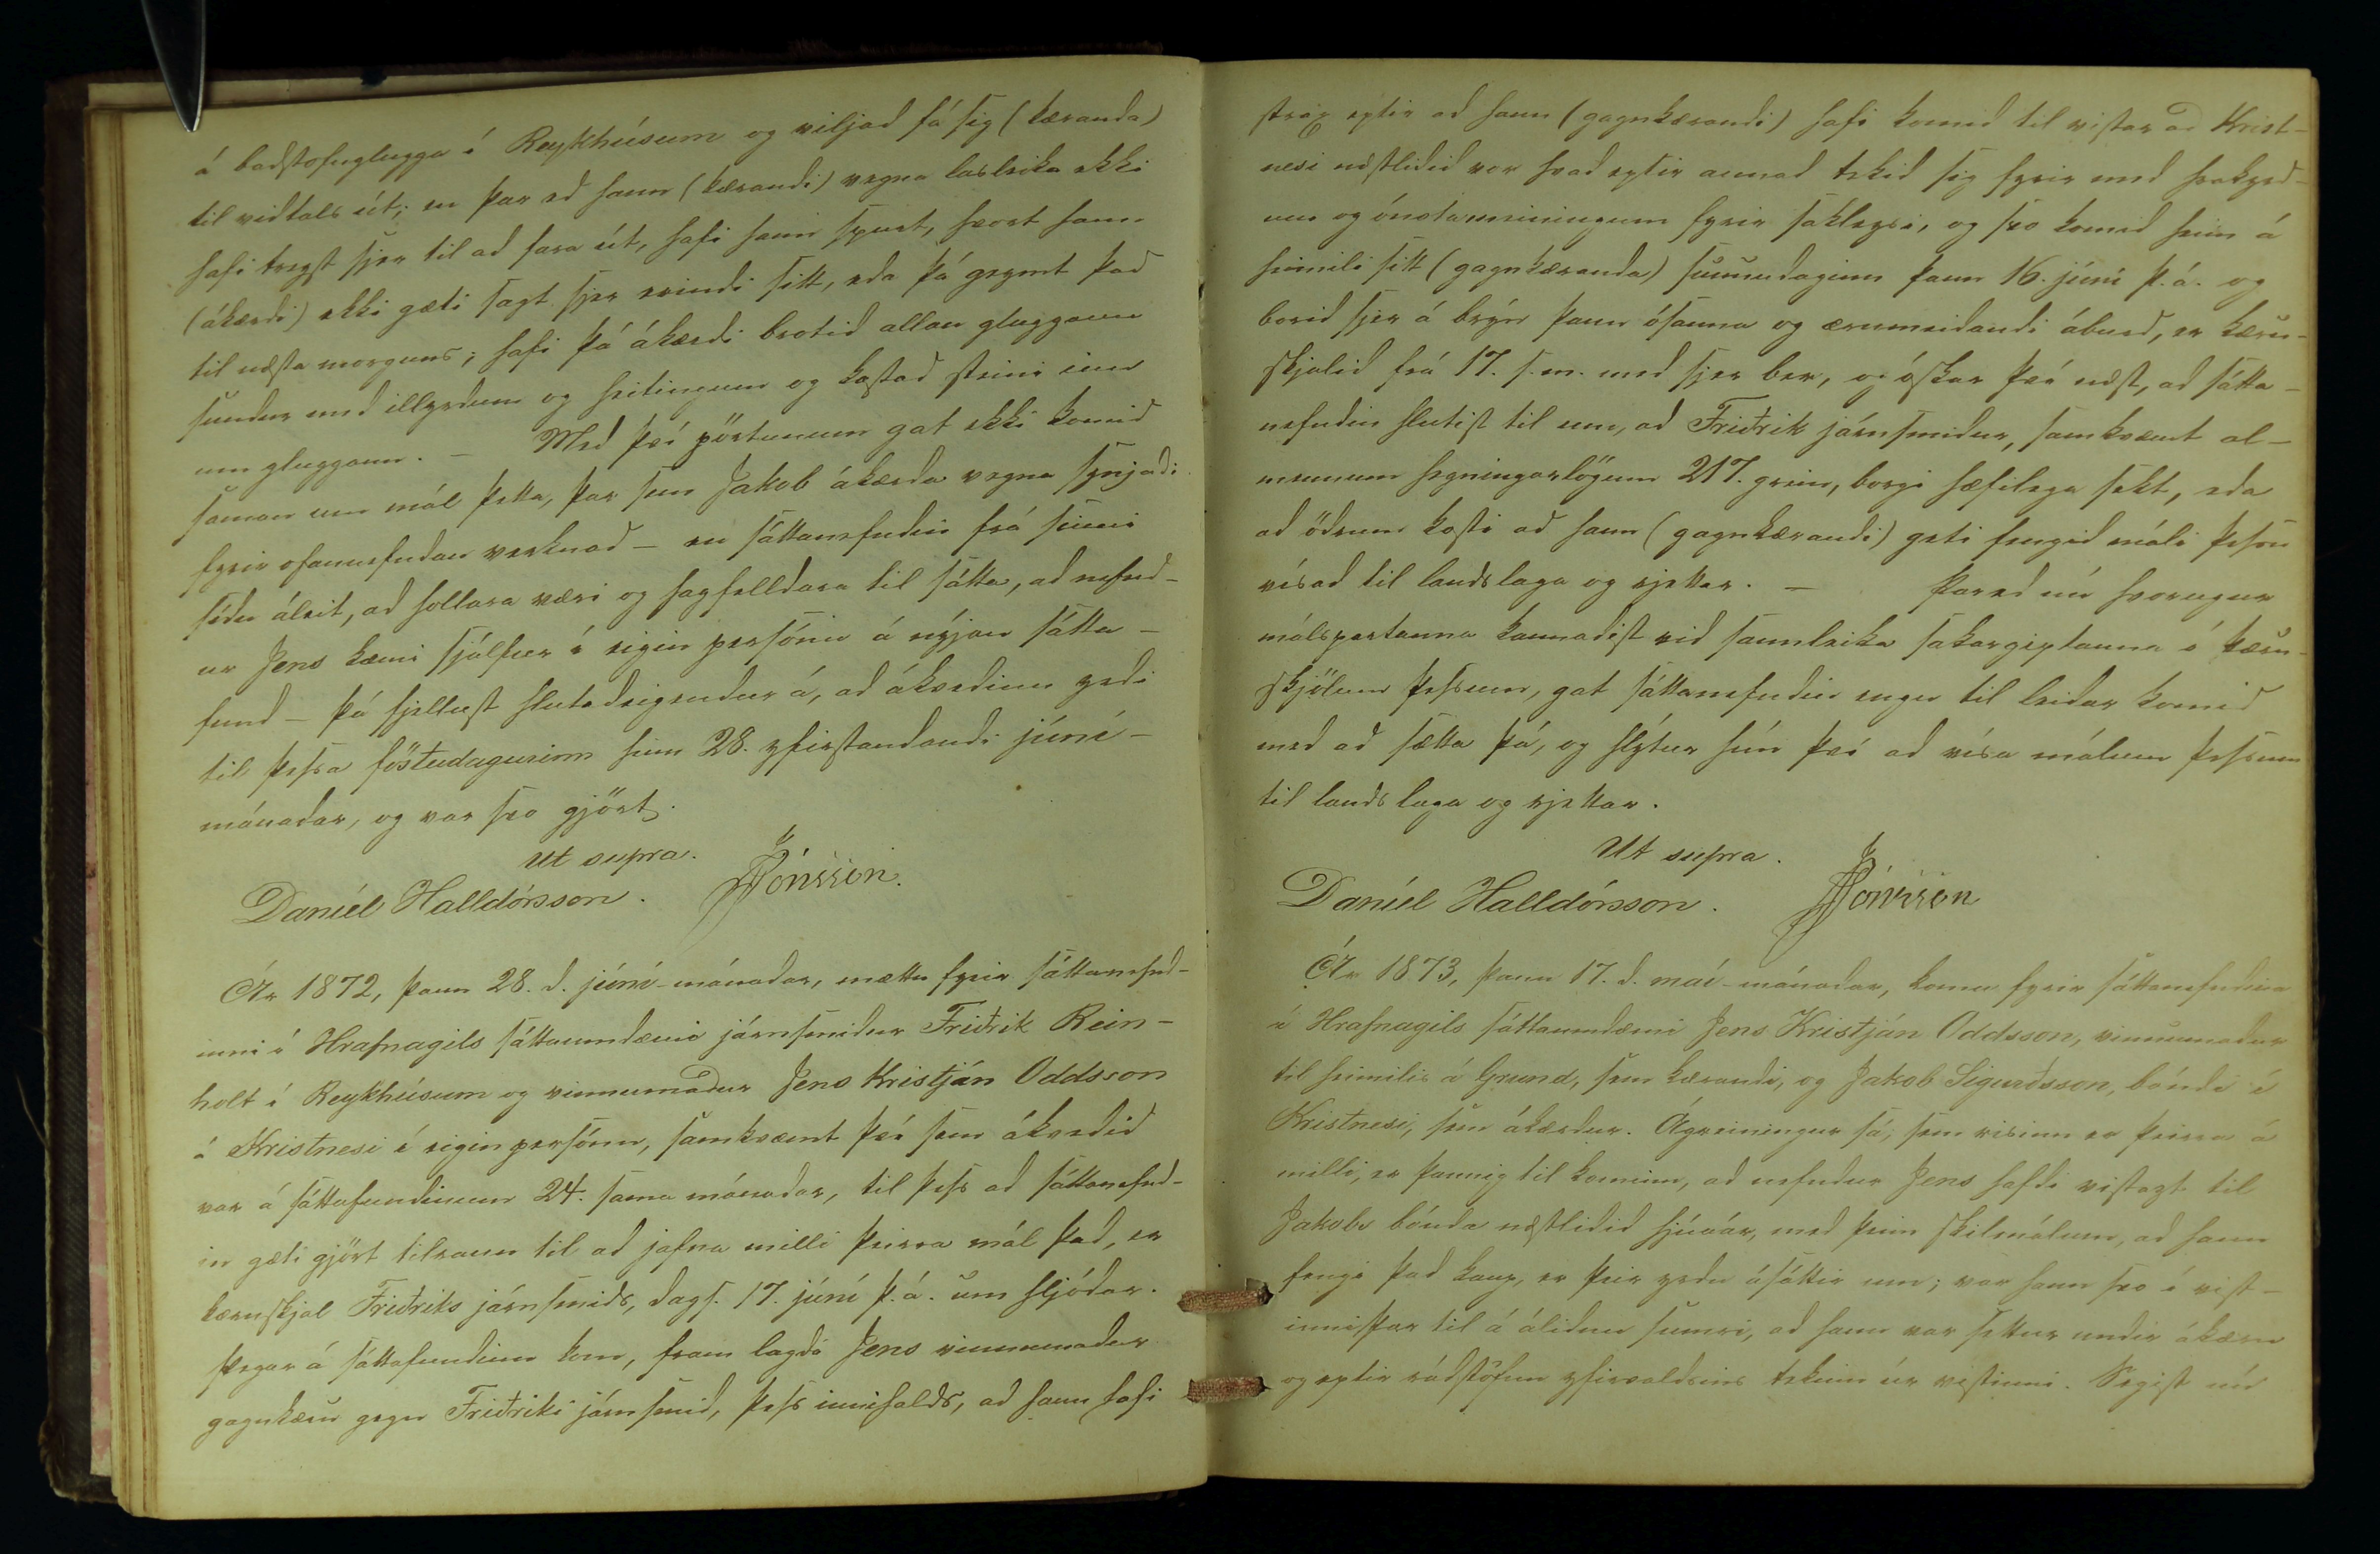 á baðstofuglugga í Reykhúsum og viljað fá sig (kæranda)
til viðtals út; en þar eð hann (kærandi) vegna lasleika ekki
hafi treyst sjer til að fara út, hafi hann spurt, hvort hann
(ákærði) ekki gæti sagt sjer erindi sitt, eða þá geymt það
til næsta morguns; hafi þá ákærði brotið allan gluggann
sundur með illyrðum og heitingum og kastað steini inn
um gluggann. – Með því pörtunum gat ekki komið
saman um mál þetta, þar sem Jakob ákærða vegna synjaði
fyrir ofannefndan verknað – en sáttanefndin frá sinni
síðu áleit, að hollara væri og hagfelldara til sátta, að nefnd-
ur Jens kæmi sjálfur í eigin persónu á nýjan sátta-
fund – þá fjellust hlutaðeigendur á, að ákveðinn yrði
til þessa föstudagurinn hinn 28. yfirstandandi júní-
mánaðar, og var svo gjört.
Ut supra.
Daníel Halldórsson. JJónsson.
Ár 1872, þann 28. d. júní-mánaðar, mættu fyrir sáttanefnd-
inni í Hrafnagils sáttaumdæmi járnsmiður Friðrik Rein-
holt í Reykhúsum og vinnumaður Jens Kristján Oddsson
á Kristnesi í eigin persónu, samkvæmt því sem ákveðið
var á sáttafundinum 24. sama mánaðar, til þess að sáttanefnd-
in gæti gjört tilraun til að jafna milli þeirra mál það, er
kæruskjal Friðriks járnsmiðs, dags. 17. júní þ.á. um hljóðar.
Þegar á sáttafundinn kom, fram lagði Jens vinnumaður
gagnkæru gegn Friðriki járnsmið, þess innihalds, að hann hafi
strax eptir að hann (gagnkærandi) hafi komið til vistar að Krist-
nesi næstliðið vor hvað eptir annað tekið sig fyrir með hrakyrð-
um og ónotameiningum fyrir sakleysi, og svo komið heim á
heimili sitt (gagnkæranda) sunnudaginn þann 16. júní þ.á. og
borið sjer á brýn þann ósanna og ærumeiðandi áburð, er kæru-
skjalið frá 17. s.m. með sjer ber, og óskar því næst, að sátta-
nefndin hlutist til um, að Friðrik járnsmiður, samkvæmt al-
mennum hegningarlögum 217. grein, borgi hæfilega sekt, eða
að öðrum kosti að hann (gagnkærandi) geti fengið máli þessu
vísað til landslaga og rjettar. – Þareð nú hvorugur
málspartanna kannaðist við sannleika sakargiptanna í kæru-
skjölum þessum, gat sáttanefndin engu til leiðar komið
með að sætta þá, og hlýtur hún því að vísa málum þessum
til landslaga og rjettar.
Ut supra.
Daníel Halldórsson. JJónsson
Ár 1873, þann 17. d. maí-mánaðar, komu fyrir sáttanefndina
í Hrafnagils sáttaumdæmi Jens Kristján Oddsson, vinnumaður
til heimilis á Grund, sem kærandi, og Jakob Sigurðsson, bóndi í
Kristnesi, sem ákærður. Ágreiningur sá, sem risinn er þeirra á
milli, er þannig til kominn, að nefndur Jens hafði vistazt til
Jakobs bónda næstliðið hjúaár, með þeim skilmálum, að hann
fengi það kaup, er þeir yrðu ásáttir um; var hann svo í vist-
inni þar til á áliðnu sumri, að hann var settur undir ákæru
og eptir ráðstöfun yfirvaldsins tekinn úr vistinni. Segist nú